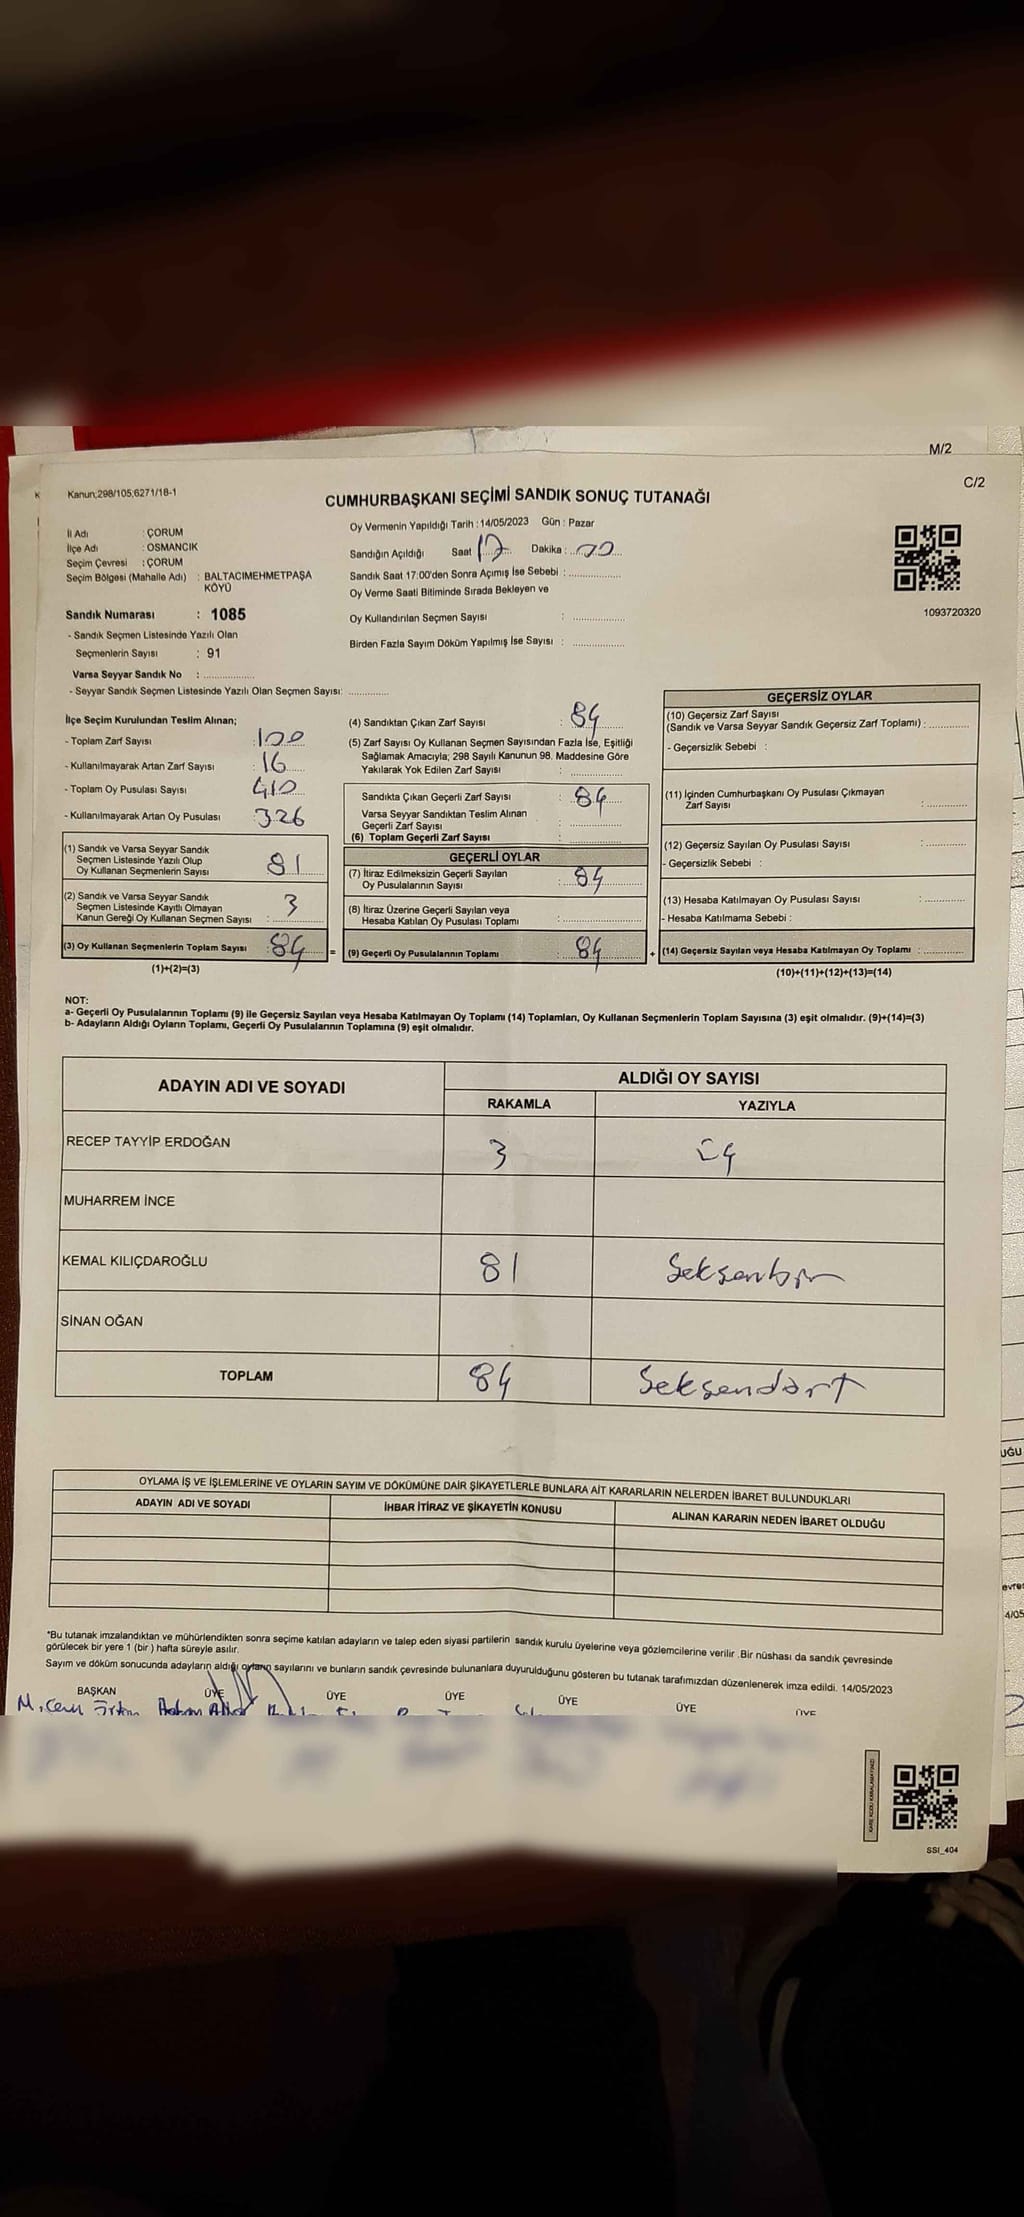 M/2
C/2
Kanun;298/105;6271/18-1
CUMHURBAŞKANI SEÇİMİ SANDIK SONUÇ TUTANAĞI
İl Adı : ÇORUM
İlçe Adı : OSMANCIK
Seçim Çevresi : ÇORUM
Seçim Bölgesi (Mahalle Adı) : BALTACIMEHMETPAŞA
KÖYÜ
Sandık Numarası : 1085
- Sandık Seçmen Listesinde Yazılı Olan
Seçmenlerin Sayısı : 91
Varsa Seyyar Sandık No : ..............
- Seyyar Sandık Seçmen Listesinde Yazılı Olan Seçmen Sayısı: ............
Oy Vermenin Yapıldığı Tarih : 14/05/2023 Gün : Pazar
Sandığın Açıldığı Saat 17 Dakika : 00
Sandık Saat 17:00'den Sonra Açımış İse Sebebi : ..............
Oy Verme Saati Bitiminde Sırada Bekleyen ve
Oy Kullandırılan Seçmen Sayısı : ..............
Birden Fazla Sayım Döküm Yapılmış İse Sayısı : ..............
1093720320
İlçe Seçim Kurulundan Teslim Alınan;
- Toplam Zarf Sayısı : 100
- Kullanılmayarak Artan Zarf Sayısı : 16
- Toplam Oy Pusulası Sayısı : 410
- Kullanılmayarak Artan Oy Pusulası : 326
(1) Sandık ve Varsa Seyyar Sandık
Seçmen Listesinde Yazılı Olup
Oy Kullanan Seçmenlerin Sayısı : 81
(2) Sandık ve Varsa Seyyar Sandık
Seçmen Listesinde Kayıtlı Olmayan
Kanun Gereği Oy Kullanan Seçmen Sayısı : 3
(3) Oy Kullanan Seçmenlerin Toplam Sayısı : 84 =
(1)+(2)=(3)
(4) Sandıktan Çıkan Zarf Sayısı : 84
(5) Zarf Sayısı Oy Kullanan Seçmen Sayısından Fazla İse, Eşitliği
Sağlamak Amacıyla; 298 Sayılı Kanunun 98. Maddesine Göre
Yakılarak Yok Edilen Zarf Sayısı : ..............
Sandıkta Çıkan Geçerli Zarf Sayısı : 84
Varsa Seyyar Sandıktan Teslim Alınan
Geçerli Zarf Sayısı : ..............
(6) Toplam Geçerli Zarf Sayısı : ..............
GEÇERLİ OYLAR
(7) İtiraz Edilmeksizin Geçerli Sayılan
Oy Pusulalarının Sayısı : 84
(8) İtiraz Üzerine Geçerli Sayılan veya
Hesaba Katılan Oy Pusulası Toplamı : ..............
(9) Geçerli Oy Pusulalarının Toplamı : 84 +
GEÇERSİZ OYLAR
(10) Geçersiz Zarf Sayısı
(Sandık ve Varsa Seyyar Sandık Geçersiz Zarf Toplamı) : ............
- Geçersizlik Sebebi :
(11) İçinden Cumhurbaşkanı Oy Pusulası Çıkmayan
Zarf Sayısı : ............
(12) Geçersiz Sayılan Oy Pusulası Sayısı : ............
- Geçersizlik Sebebi :
(13) Hesaba Katılmayan Oy Pusulası Sayısı : ............
- Hesaba Katılmama Sebebi :
(14) Geçersiz Sayılan veya Hesaba Katılmayan Oy Toplamı : ............
(10)+(11)+(12)+(13)=(14)
NOT:
a- Geçerli Oy Pusulalarının Toplamı (9) ile Geçersiz Sayılan veya Hesaba Katılmayan Oy Toplamı (14) Toplamları, Oy Kullanan Seçmenlerin Toplam Sayısına (3) eşit olmalıdır. (9)+(14)=(3)
b- Adayların Aldığı Oyların Toplamı, Geçerli Oy Pusulalarının Toplamına (9) eşit olmalıdır.
ADAYIN ADI VE SOYADI ALDIĞI OY SAYISI
RAKAMLA YAZIYLA
RECEP TAYYİP ERDOĞAN 3 üç
MUHARREM İNCE
KEMAL KILIÇDAROĞLU 81 Seksenbir
SİNAN OĞAN
TOPLAM 84 Seksendört
OYLAMA İŞ VE İŞLEMLERİNE VE OYLARIN SAYIM VE DÖKÜMÜNE DAİR ŞİKAYETLERLE BUNLARA AİT KARARLARIN NELERDEN İBARET BULUNDUKLARI
ADAYIN ADI VE SOYADI İHBAR İTİRAZ VE ŞİKAYETİN KONUSU ALINAN KARARIN NEDEN İBARET OLDUĞU
*Bu tutanak imzalandıktan ve mühürlendikten sonra seçime katılan adayların ve talep eden siyasi partilerin sandık kurulu üyelerine veya gözlemcilerine verilir .Bir nüshası da sandık çevresinde
görülecek bir yere 1 (bir ) hafta süreyle asılır.
Sayım ve döküm sonucunda adayların aldığı oyların sayılarını ve bunların sandık çevresinde bulunanlara duyurulduğunu gösteren bu tutanak tarafımızdan düzenlenerek imza edildi. 14/05/2023
BAŞKAN ÜYE ÜYE ÜYE ÜYE ÜYE ÜYE
SSI_404